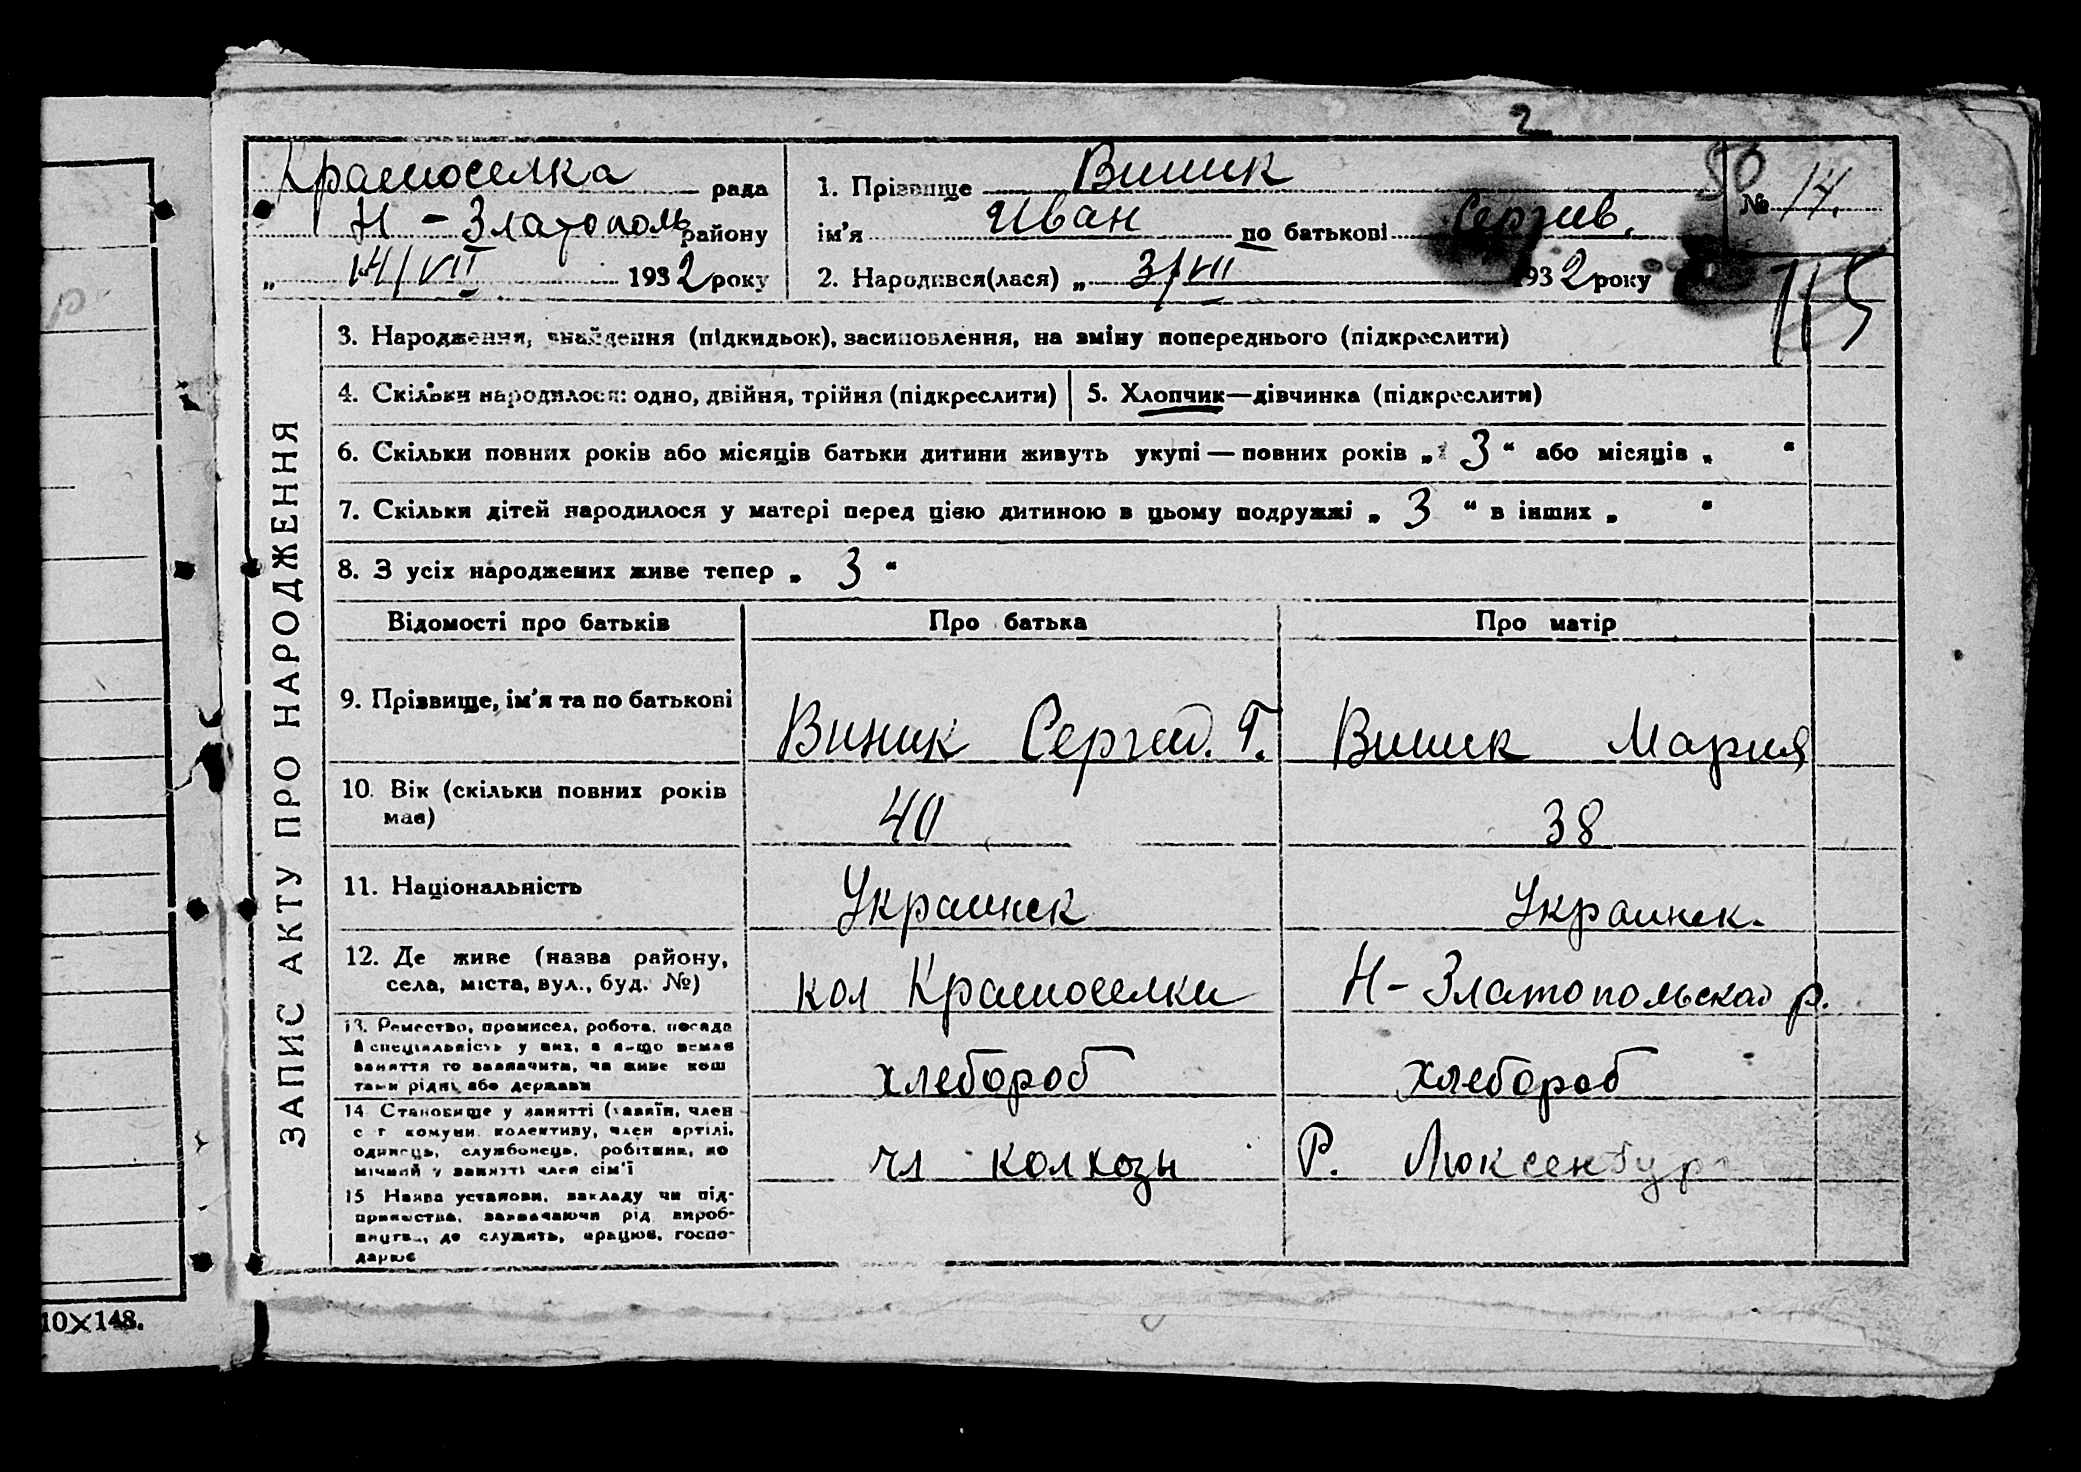 2
Красноселка рада
Н - Златополь району
„ 14/VII 1932 року
1. Прізвище Виник
ім'я Иван по батькові Сергиев.
2. Народився(лася) „ 3/VII 1932 року
50
№ 14.
115
ЗАПИС АКТУ ПРО НАРОДЖЕННЯ
3. Народження, знайдення (підкидьок), засиновлення, на зміну попереднього (підкреслити)
4. Скільки народилося: одно, двійня, трійня (підкреслити)
5. Хлопчик—дівчинка (підкреслити)
6. Скільки повних років або місяців батьки дитини живуть укупі — повних років „ 3 “ або місяців „ “
7. Скільки дітей народилося у матері перед цією дитиною в цьому подружжі „ 3 “ в інших „ “
8. З усіх народжених живе тепер „ 3 “
Відомості про батьків
Про батька
Про матір
9. Прізвище, ім'я та по батькові
Виник Сергей. Г.
Виник Мария
10. Вік (скільки повних років
має)
40
38
11. Національність
Украинск
Украинск.
12. Де живе (назва району,
села, міста, вул., буд. №)
кол Красноселки
Н - Златопольская р.
13. Ремество, промисел, робота, посада
й спеціяльність у них, а якщо немає
заняття то зазначити, чи живе кош
тами рідні або держави
хлебороб
хлебороб
14 Становище у занятті (хазяїн, член
с г комуни колективу, член артілі,
одинець, службовець, робітник, по
мічний у занятті член сім'ї
чл колхозы
Р. Люксенбург
15 Назва установи, закладу чи під-
приємства, зазначаючи рід вироб-
ництва, де служить, працює, госпо-
дарює
10×148.